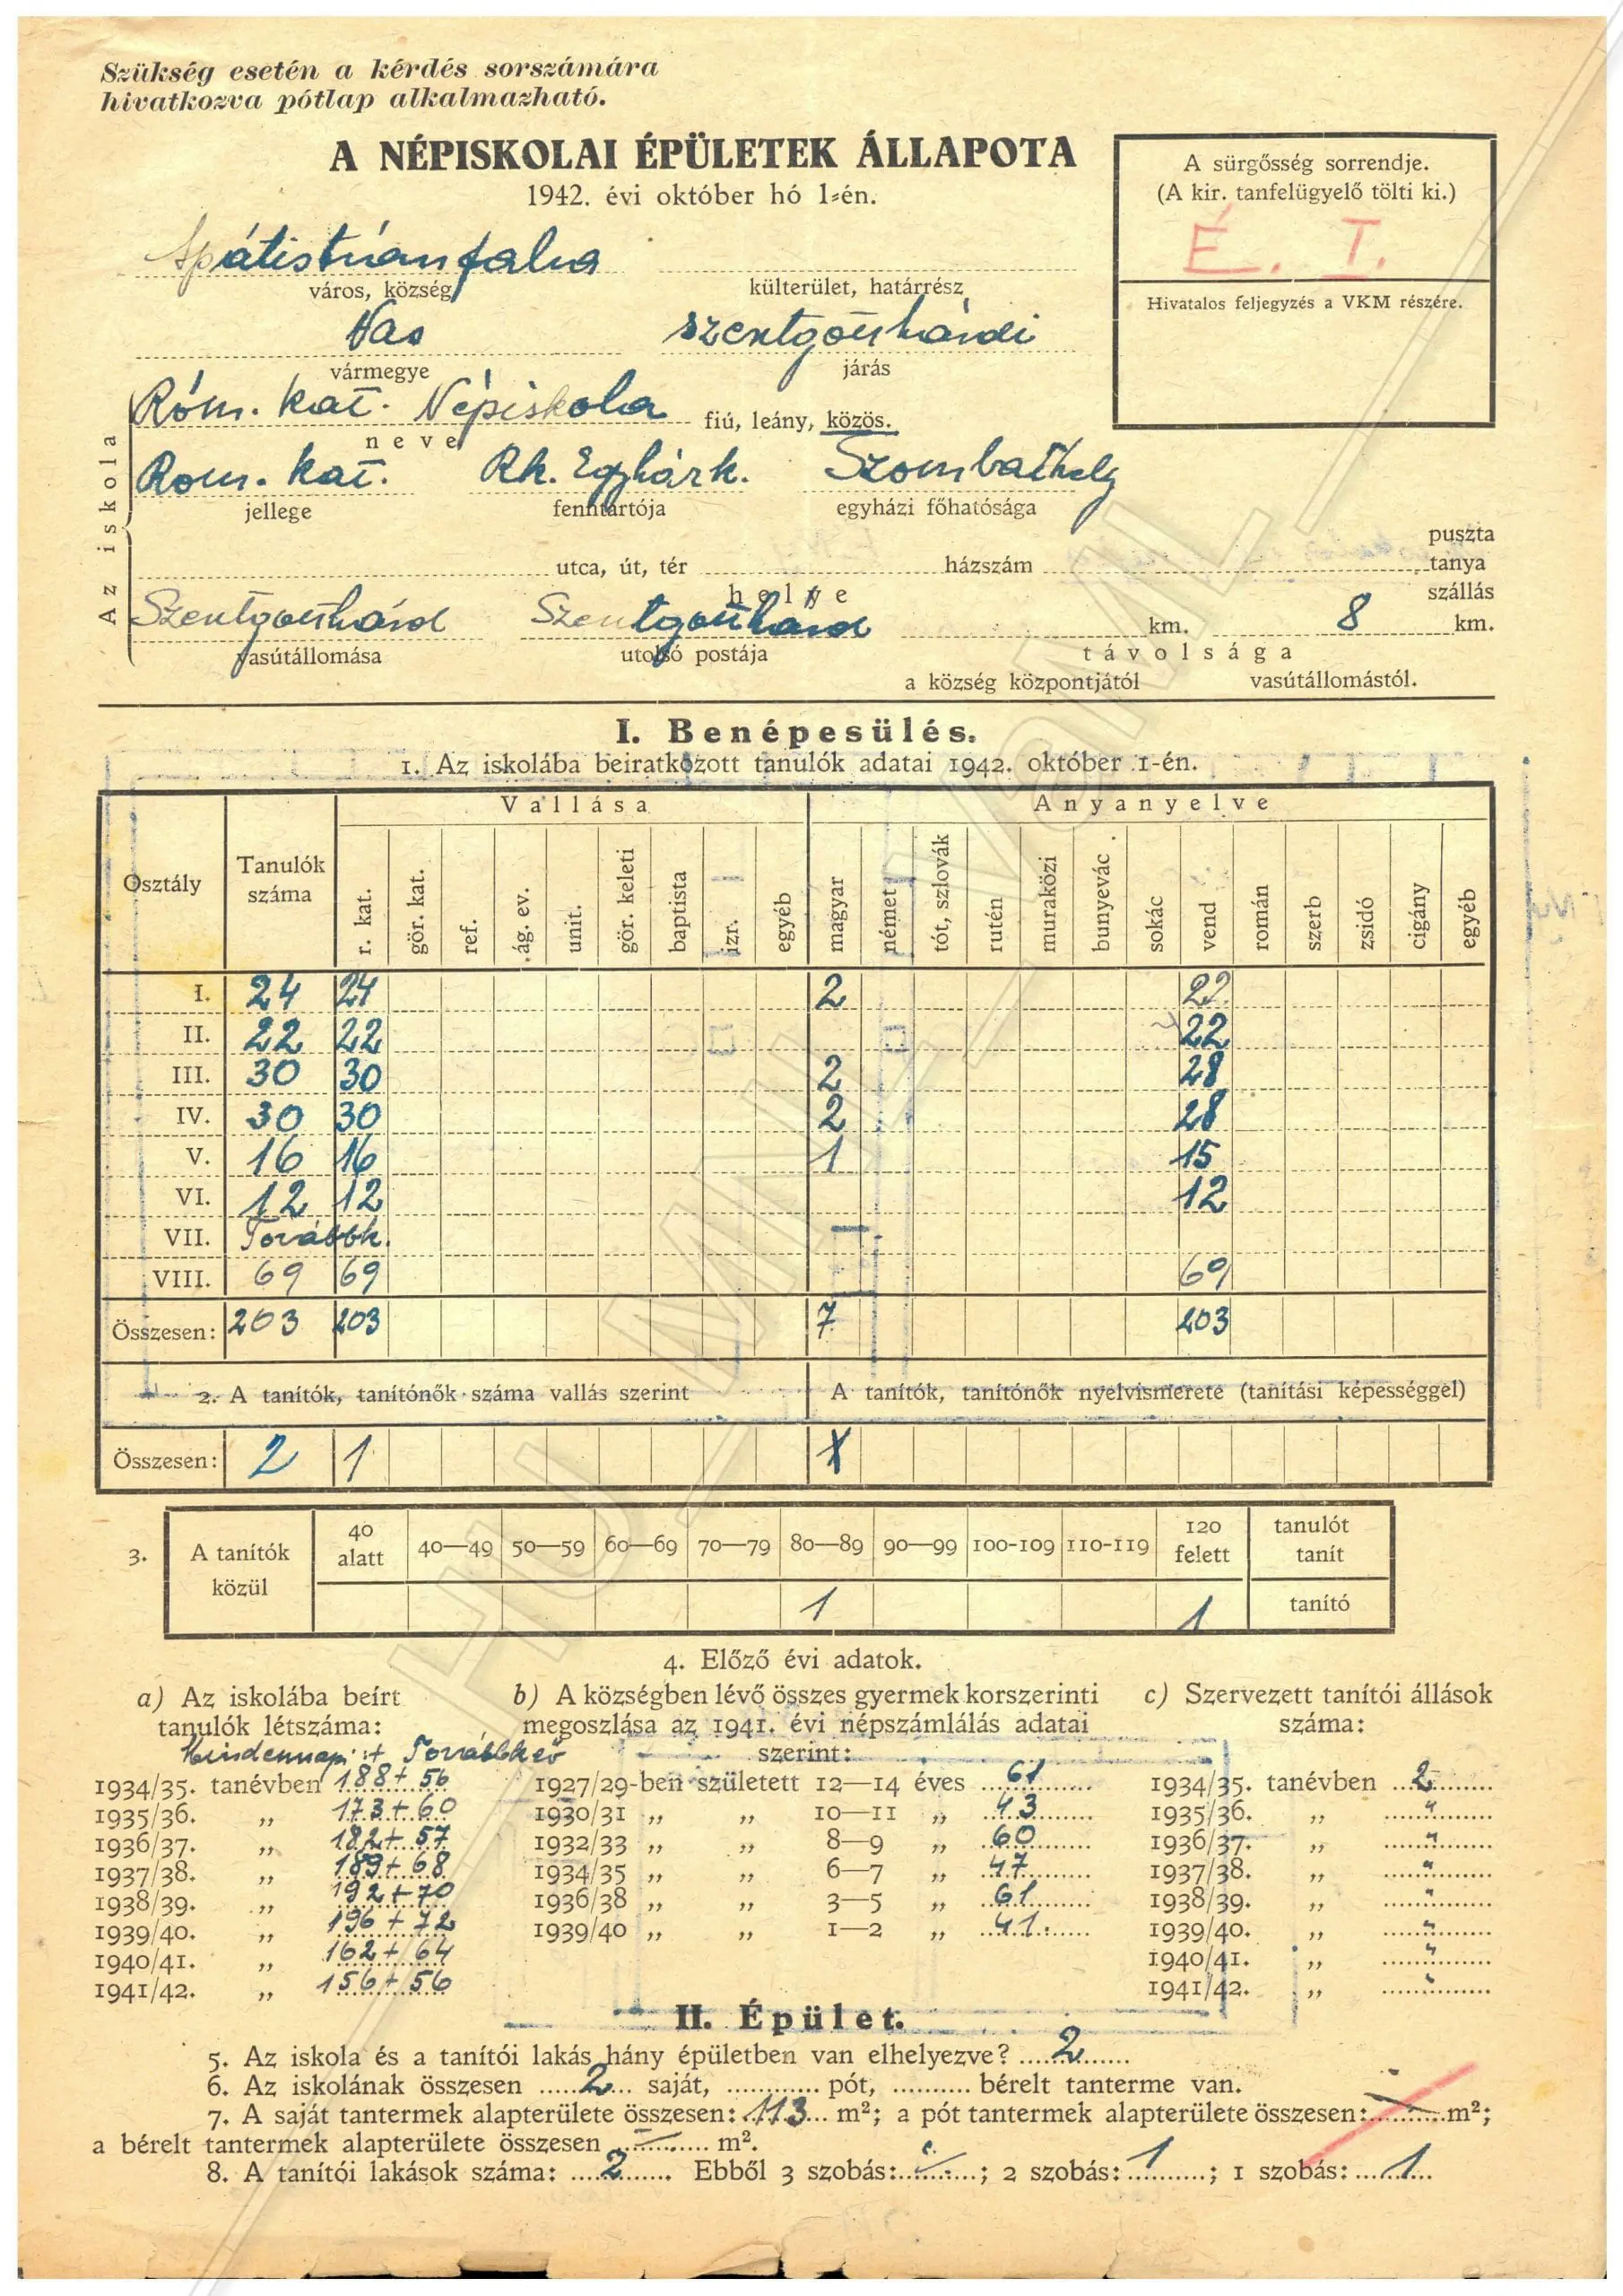 Szükség esetén a kérdés sorszámára
hivatkozva pótlap alkalmazható.
A NÉPISKOLAI ÉPÜLETEK ÁLLAPOTA
1942. évi október hó 1-én.
A sürgősség sorrendje.
(A kir. tanfelügyelő tölti ki.)
É. T.
Hivatalos feljegyzés a VKM részére.
Apátistvánfalva
város, község
külterület, határrész
Vas
szentgotthárdi
vármegye
járás
Az iskola
Róm. kat. Népiskola fiú, leány, közös.
neve
Rom. kat. Rk. Egyhárk. Szombathely
jellege
fenntartója
egyházi főhatósága
utca, út, tér házszám puszta
tanya
szállás
helye
Szentgotthárd Szentgotthárd km. 8 km.
vasútállomása
utolsó postája
távolsága
a község központjától vasútállomástól.
I. Benépesülés.
1. Az iskolába beiratkozott tanulók adatai 1942. október 1-én.
Osztály Tanulók száma Vallása Anyanyelve
r. kat. gör. kat. ref. ág. ev. unit. gör. keleti baptista izr. egyéb magyar német tót, szlovák rutén muraközi bunyevác sokác vend román szerb zsidó cigány egyéb
I. 24 24 2 22
II. 22 22 22
III. 30 30 2 28
IV. 30 30 2 28
V. 16 16 1 15
VI. 12 12 12
VII. Továbbk.
VIII. 69 69 69
Összesen: 203 203 7 203
2. A tanítók, tanítónők száma vallás szerint A tanítók, tanítónők nyelvismerete (tanítási képességgel)
Összesen: 2 1
3. A tanítók közül 40 alatt 40—49 50—59 60—69 70—79 80—89 90—99 100-109 110-119 120 felett tanulót tanít
1 1 tanító
4. Előző évi adatok.
a) Az iskolába beírt
tanulók létszáma:
Mindennapi + Továbbk ső
1934/35. tanévben 188+56
1935/36. „ 173+60
1936/37. „ 182+57
1937/38. „ 189+68
1938/39. „ 192+70
1939/40. „ 196+72
1940/41. „ 162+64
1941/42. „ 156+56
b) A községben lévő összes gyermek korszerinti
megoszlása az 1941. évi népszámlálás adatai
szerint:
1927/29-ben született 12—14 éves 61
1930/31 „ „ 10—11 „ 43
1932/33 „ „ 8—9 „ 60
1934/35 „ „ 6—7 „ 47
1936/38 „ „ 3—5 „ 61
1939/40 „ „ 1—2 „ 41
c) Szervezett tanítói állások
száma:
1934/35. tanévben 2
1935/36. „ "
1936/37. „ "
1937/38. „ "
1938/39. „ "
1939/40. „ "
1940/41. „ "
1941/42. „ "
II. Épület.
5. Az iskola és a tanítói lakás hány épületben van elhelyezve? 2
6. Az iskolának összesen 2 saját, pót, bérelt tanterme van.
7. A saját tantermek alapterülete összesen: 113 m²; a pót tantermek alapterülete összesen: — m²;
a bérelt tantermek alapterülete összesen — m².
8. A tanítói lakások száma: 2 Ebből 3 szobás: —; 2 szobás: 1; 1 szobás: 1
HU_MNL_VaML